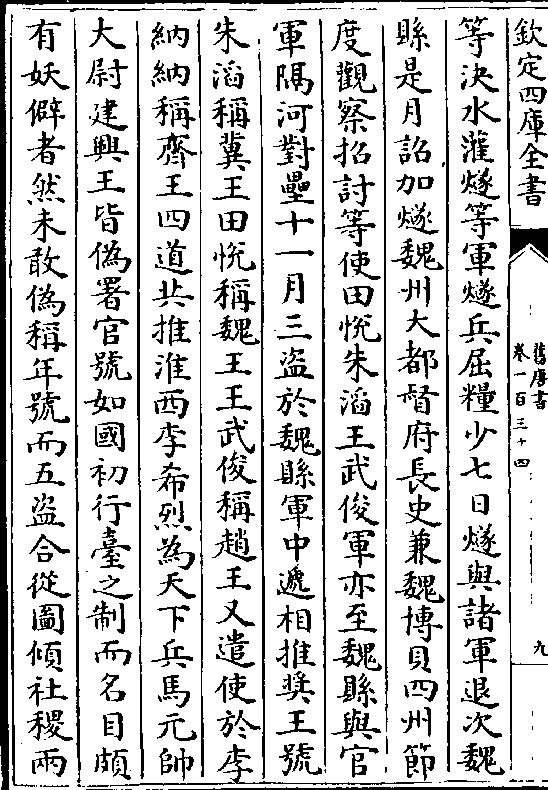 欽定四庫全書
舊唐書
卷一百三十四
九
等決水灌燧等軍燧兵屈糧少七日燧與諸軍退次魏
縣是月詔加燧魏州大都督府長史兼魏博貝四州節
度觀察招討等使田悅朱滔王武俊軍亦至魏縣與官
軍隔河對壘十一月三盗於魏縣軍中遞相推奬王號
朱滔稱冀王田悅稱魏王王武俊稱趙王又遣使於李
納納稱齊王四道共推淮西李希烈為天下兵馬元帥
大尉建興王皆偽署官號如國初行臺之制而名目頗
有妖僻者然未敢偽稱年號而五盗合從圖傾社稷兩